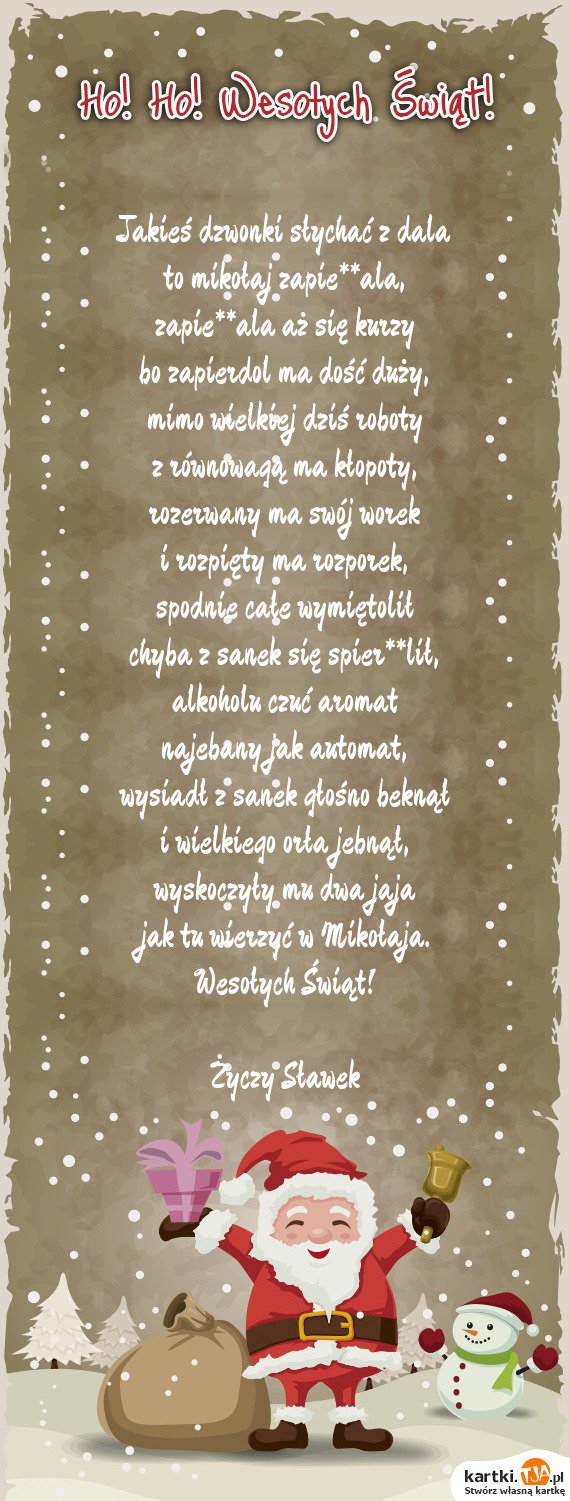 Ho! Ho! Wesołych Świąt!
Jakieś dzwonki słychać z dala
to mikołaj zapie**ala,
zapie**ala aż się kurzy
bo zapierdol ma dość duży,
mimo wielkiej dziś roboty
z równowagą ma kłopoty,
rozerwany ma swój worek
i rozpięty ma rozporek,
spodnie całe wymiętolił
chyba z sanek się spier**lił,
alkoholu czuć aromat
najebany jak automat,
wysiadł z sanek głośno beknął
i wielkiego orła jebnął,
wyskoczyły mu dwa jaja
jak tu wierzyć w Mikołaja.
Wesołych Świąt!
Życzy Sławek
kartki.TJA.pl
Stwórz własną kartkę